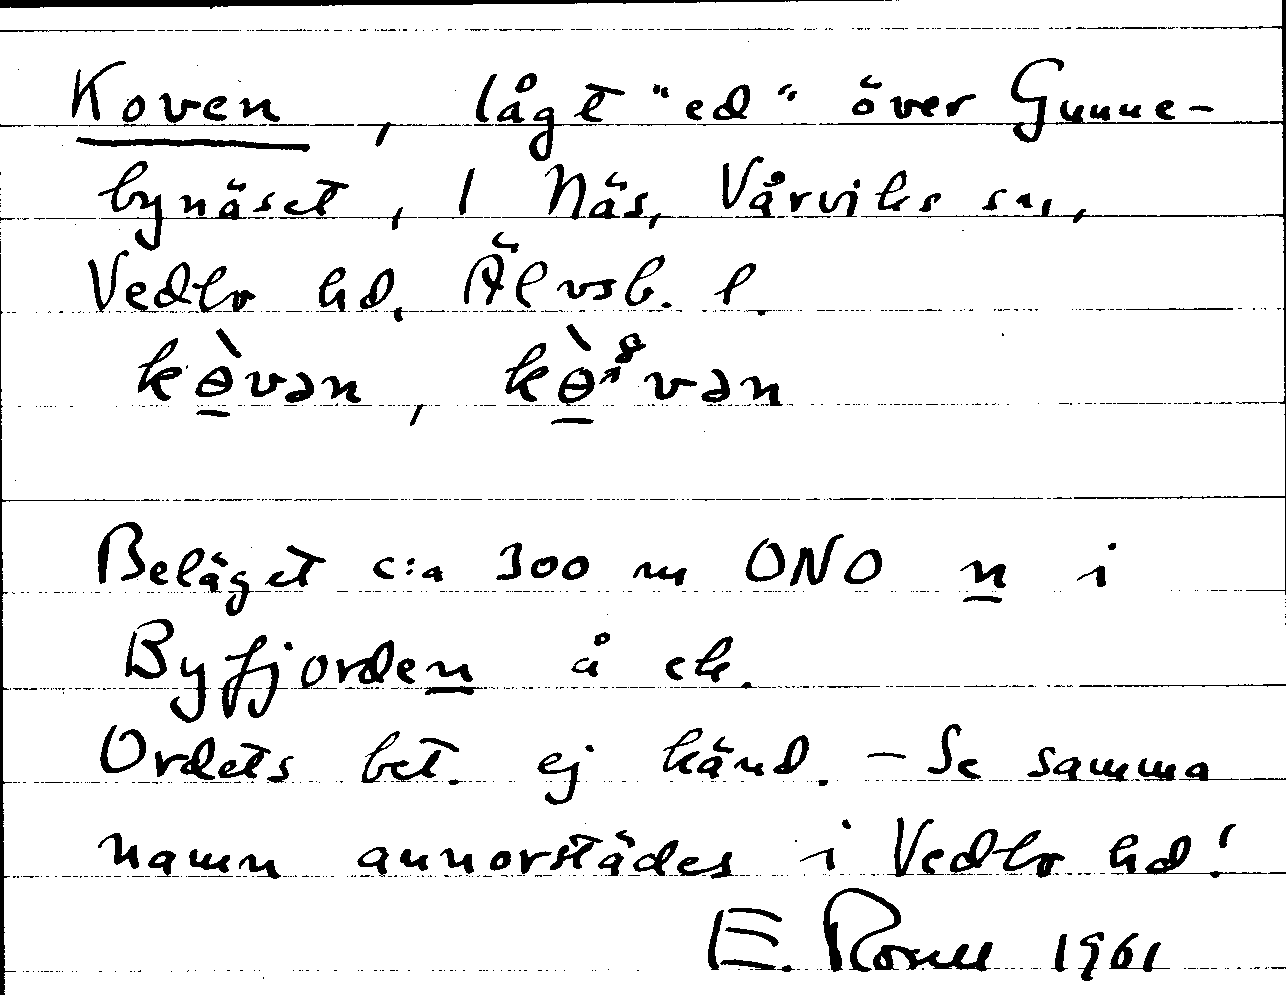 Koven, lågt "ed" över Gunne-
bynäset, 1 Näs, Vårviks sn,
Vedbo hd, Älvsb. l.
kɵ̀vən, kɵ̀ᵍvən
Beläget c:a 300 m ONO n i
Byfjorden å ek.
Ordets bet. ej känd. – Se samma
namn annorstädes i Vedbo hd!
E. 1961